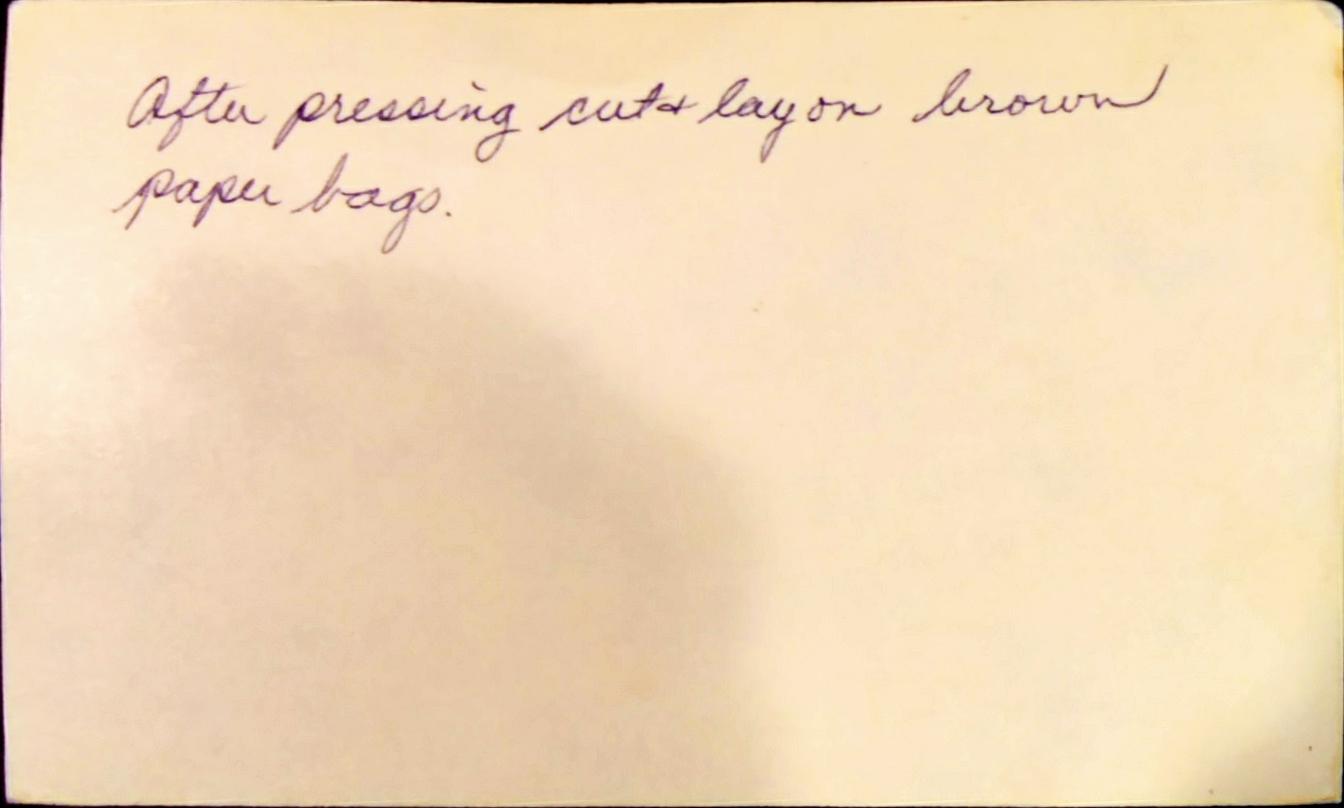 After pressing cut & lay on brown
paper bags.